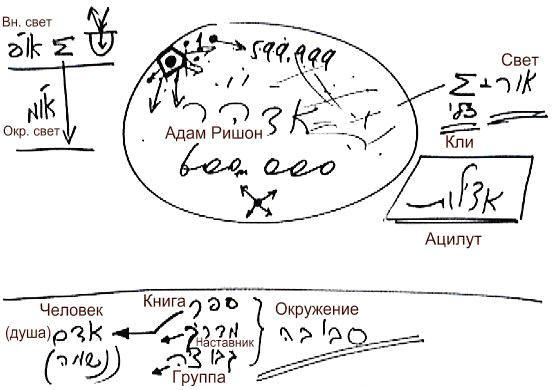 Вн. свет
Σ
Окр. свет
599,999
Адам Ришон
600,000
Свет
Σ
Кли
אצילות
Ацилут
Человек
(душа)
אדם
(נשמה)
Книга
ספר
מדריך
Наставник
קבוצה
Группа
Окружение
סביבה